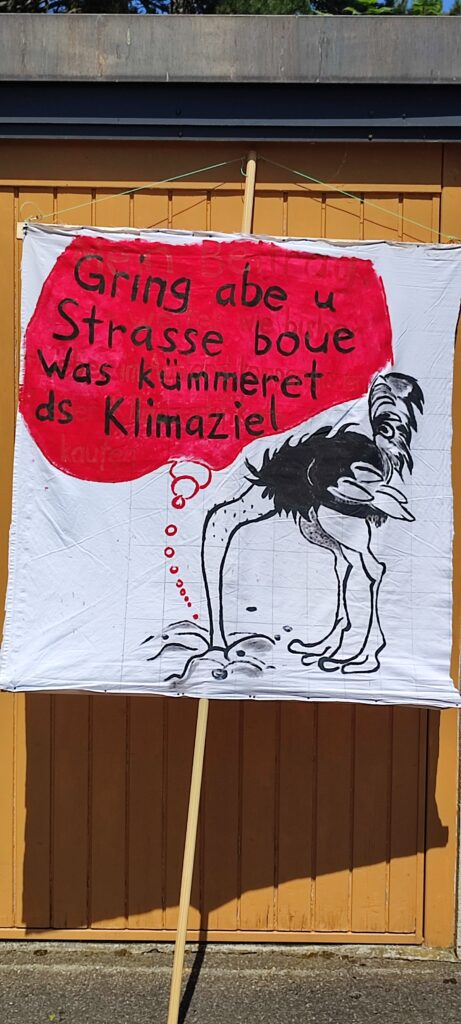 Gring abe u
Strasse boue
Was kümmeret
ds Klimaziel